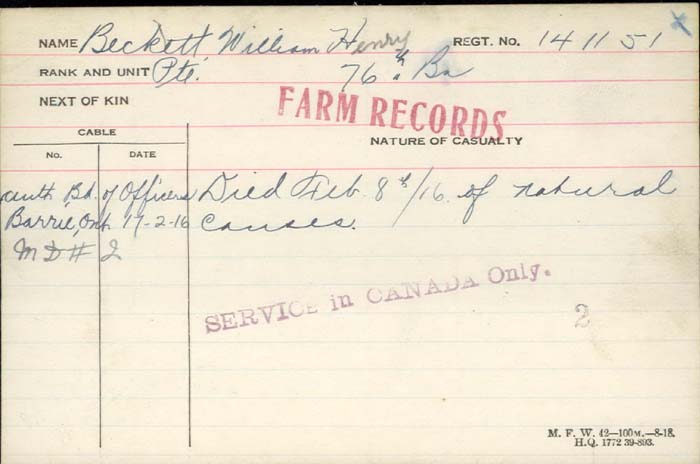 NAME Beckett, William Henry REGT. No. 141151 x
RANK AND UNIT Pte. 76th Bn
NEXT OF KIN
FARM RECORDS
CABLE
NATURE OF CASUALTY
No. DATE
auth Bd. of Officers Died Feb. 8th/16. of natural
Barrie, Ont. 17-2-16 causes.
M D # 2
SERVICE in CANADA Only.
2
M. F. W. 42—100M.—8-18.
H.Q. 1772 39-893.